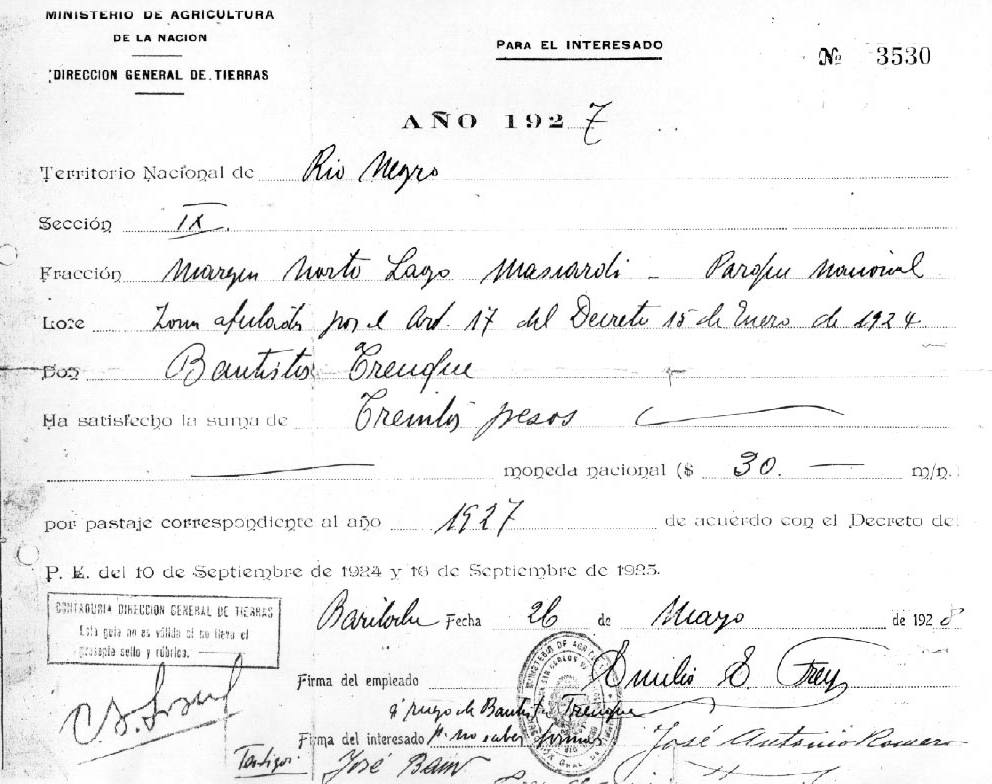 MINISTERIO DE AGRICULTURA
DE LA NACION
DIRECCION GENERAL DE TIERRAS
PARA EL INTERESADO
Nº 3530
AÑO 1927
Territorio Nacional de Rio Negro
Sección IX.
Fracción Margen Norte Lago Mascardi - Parque Nacional
Lote Zona afectada por el Art. 17 del Decreto 15 de Enero de 1924
Don Bautista Trenque
Ha satisfecho la suma de Treinta pesos
moneda nacional ($ 30. — m/n.
por pastaje correspondiente al año 1927 de acuerdo con el Decreto del
P. E. del 10 de Septiembre de 1924 y 16 de Septiembre de 1925.
CONTADURIA DIRECCION GENERAL DE TIERRAS
Esta guia no es válida si no lleva el
presente sello y rúbrica.
Bariloche Fecha 26 de Mayo de 1928
Firma del empleado Emilio E. Frey
á ruego de Bautista Trenque
Firma del interesado p. no saber firmar José Antonio Romero
Testigo: José